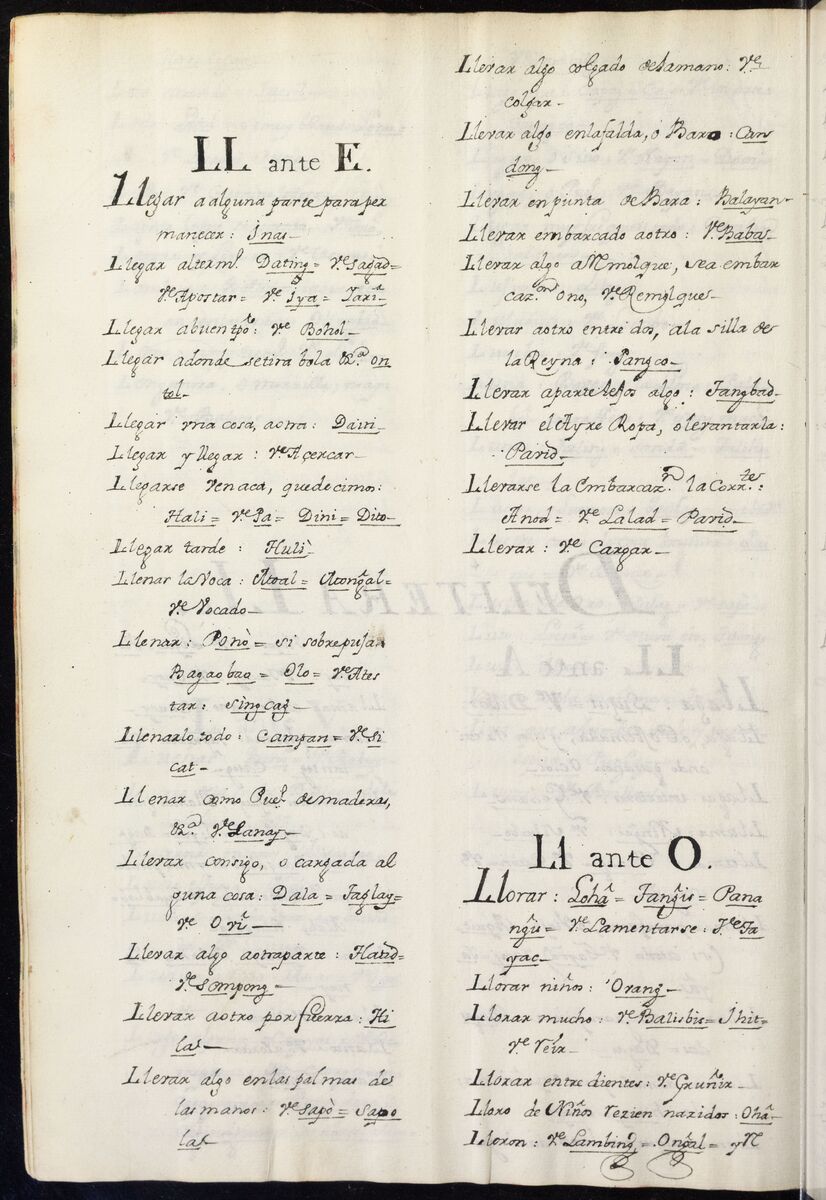 LL ante E.
Llegar a alguna parte para per
manecer: Inas_
Llegar alterml. Dating= Ve. Sagad=
Ve. Apostar= Ve. Iya= Tari
Llegar abuen tpõ: Ve Bohol_
Llegar adonde setira bola &2a. on
tol_
Llegar vna cosa, aotra: Daiti_
Llegar y llegar: Ve Açercar_
Llegarse Venaca, quedecimos:
Hali= Ve. Pa= Dini= Dito_
Llegar tarde: Hulì_
Llenar la Voca: Atoal= Atong̃al_
Ve. Vocado_
Llenar: Ponò= si sobrepuja:
Bagaobao= Olo= Ve. Ates
tar: singcag_
Llenarlo todo: Campan= Ve. si
cat_
Llenar como Puel. demaderas,
&2a. Ve. Lanay_
Llevar consigo, o cargada al
guna cosa: Dala= Taglay=
Ve. Orĩ
Llevar algo aotraparte: Hatid=
Ve. sompong_
Llevar aotro por fuerza: Hi
las_
Llevar algo enlas palmas de
las manos: Ve. sapò= sapo
las_
Llevar algo colgado delamano: Ve.
colgar_
Llevar algo enlafalda, o Baro: Can
dong_
Llevar en punta de Bara: Balayan_
Llevar embarcado aotro: Ve. Babas_
Llevar algo aRmolque, sea embar
cazon. ono, Ve. Remolque_
Llevar aotro entre dos, ala silla de
la Reyna: Pangco_
Llevar aparte lejos algo: Tangbad_
Llevar el Ayre Ropa, olevantarla:
Parìd_
Llevarse la Embarcazn. la Corrtes:
Anod= Ve. Lalad= Parìd_
Llevar: Ve. Cargar_
Ll ante O.
Llorar: Lohã= Tang̃is= Pana
ng̃is= Ve. Lamentarse: Ve. Ta
yac_
Llorar niños: Orang_
Llorar mucho: Ve. Balisbis= Ihit=
Ve. Veir_
Llorar entre dientes: Ve. Gruñir_
Lloro de Niños rezien nazidos: Ohã_
Lloron: Ve. Lambing= Ong̃al= yN